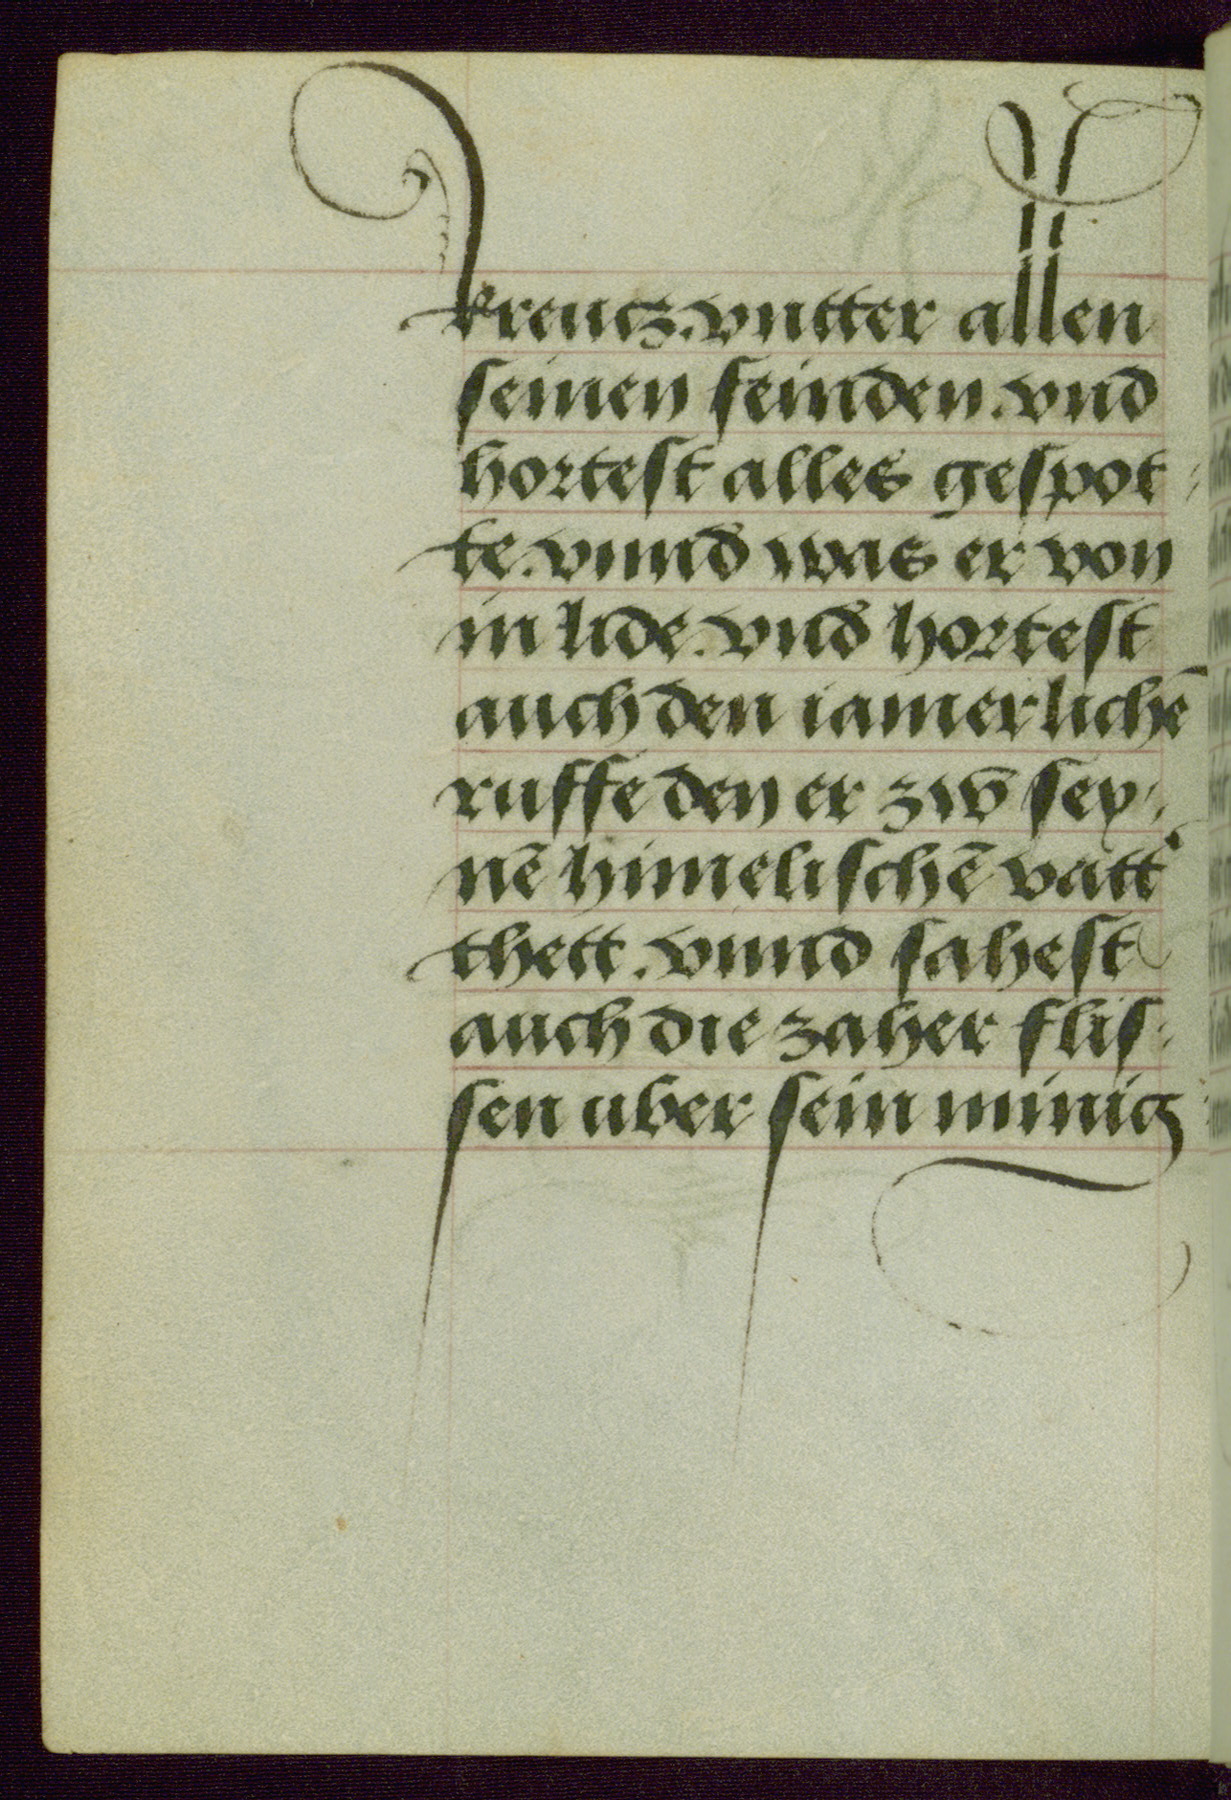 kreucz. vntter allen
seinen feinden. vnd
hortest alles gespot-
te. vnnd was er von
in lide. vnd hortest
auch den iamerlichē
ruffe den er zw sey-
nē himelischē vatt'
thett. vnnd sahest
auch die zaher flis-
sen uber sein minicz